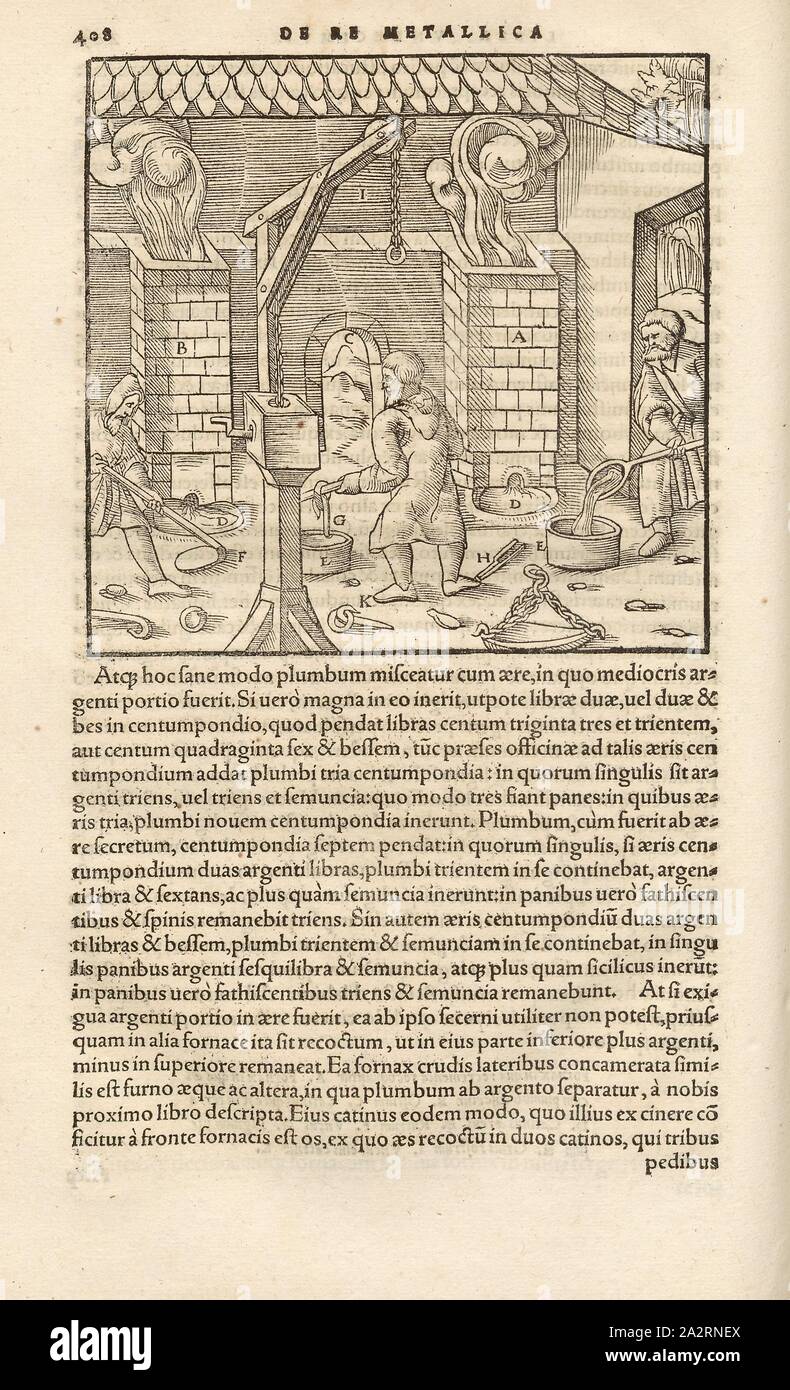 408 DE RE METALLICA
I
B
C
A
D
D
G
F
E
H
E
K
Atq; hoc ſane modo plumbum miſceatur cum ære, in quo mediocris ar-
genti portio fuerit. Si uerò magna in eo inerit, utpote libræ duæ, uel duæ &
bes in centumpondio, quod pendat libras centum triginta tres et trientem,
aut centum quadraginta ſex & beſſem, tũc præſes officinæ ad talis æris cen
tumpondium addat plumbi tria centumpondia: in quorum ſingulis ſit ar-
genti triens, uel triens et ſemuncia: quo modo tres fiant panes: in quibus æ-
ris tria, plumbi nouem centumpondia inerunt. Plumbum, cùm fuerit ab æ-
re ſecretum, centumpondia ſeptem pendat: in quorum ſingulis, ſi æris cen-
tumpondium duas argenti libras, plumbi trientem in ſe continebat, argen-
ti libra & ſextans, ac plus quàm ſemuncia inerunt: in panibus uerò fathiſcen
tibus & ſpinis remanebit triens. Sin autem æris centumpondiũ duas argen
ti libras & beſſem, plumbi trientem & ſemunciam in ſe continebat, in ſingu
lis panibus argenti ſeſquilibra & ſemuncia, atq; plus quam ſicilicus inerũt:
in panibus uerò fathiſcentibus triens & ſemuncia remanebunt. At ſi exi-
gua argenti portio in ære fuerit, ea ab ipſo ſecerni utiliter non poteſt, priuſ-
quam in alia fornace ita ſit recoctum, ut in eius parte inferiore plus argenti,
minus in ſuperiore remaneat. Ea fornax crudis lateribus concamerata ſimi-
lis eſt furno æque ac altera, in qua plumbum ab argento ſeparatur, à nobis
proximo libro deſcripta. Eius catinus eodem modo, quo illius ex cinere cõ
ficitur à fronte fornacis eſt os, ex quo æs recoctũ in duos catinos, qui tribus
pedibus
alamy
alamy stock photo
Image ID: 2A2RNEX
www.alamy.com